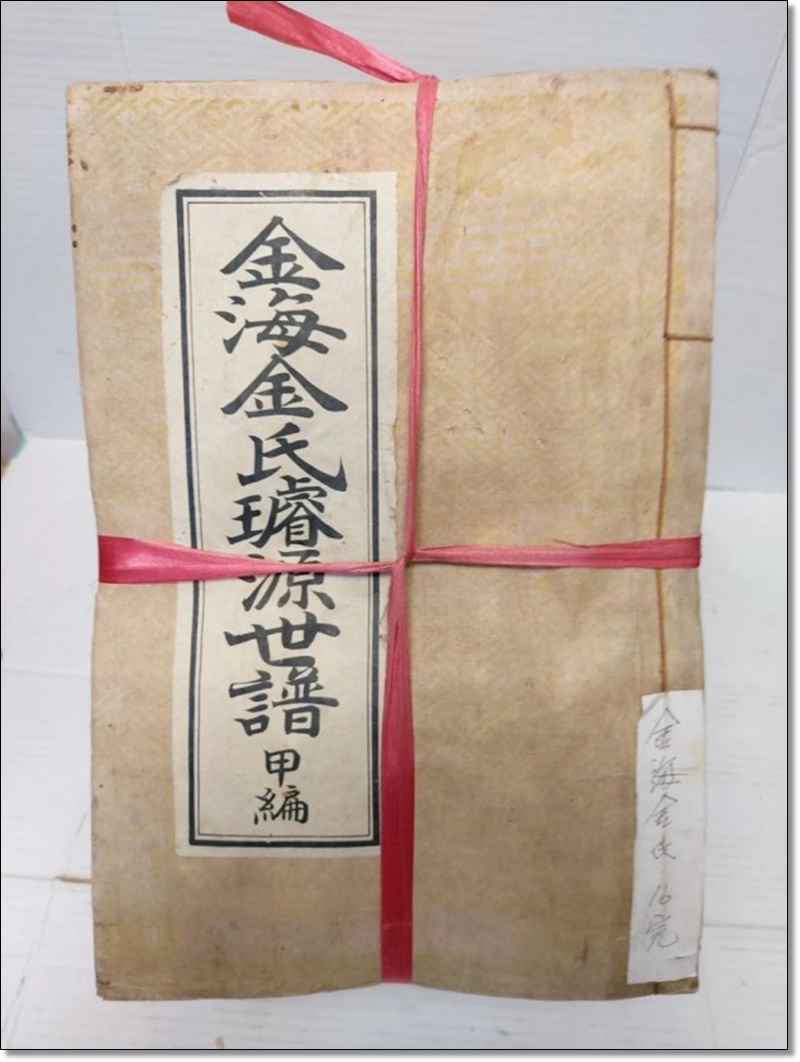 金海金氏璿源世譜 甲編
金海金氏 16完